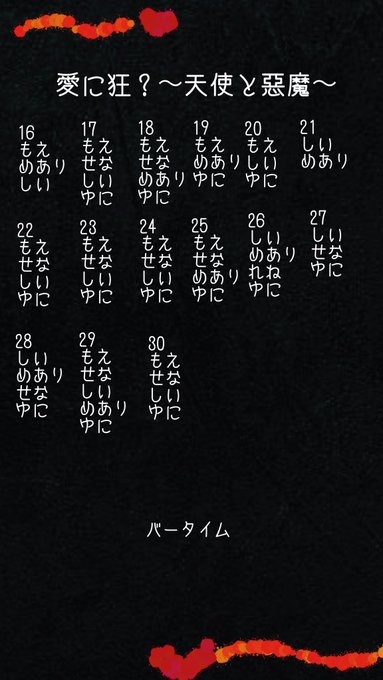 愛に狂？～天使と惡魔～
16
もえ
めあり
しい
17
もえ
せな
しい
ゆに
18
もえ
せな
めあり
ゆに
19
もえ
めあり
ゆに
20
もえ
しい
ゆに
21
しい
めあり
22
もえ
せな
しい
ゆに
23
もえ
せな
しい
ゆに
24
もえ
せな
しい
ゆに
25
もえ
せな
めあり
ゆに
26
しい
めあり
れね
ゆに
27
しい
せな
ゆに
28
しい
めあり
せな
ゆに
29
もえ
せな
しい
めあり
ゆに
30
もえ
せな
しい
ゆに
バータイム